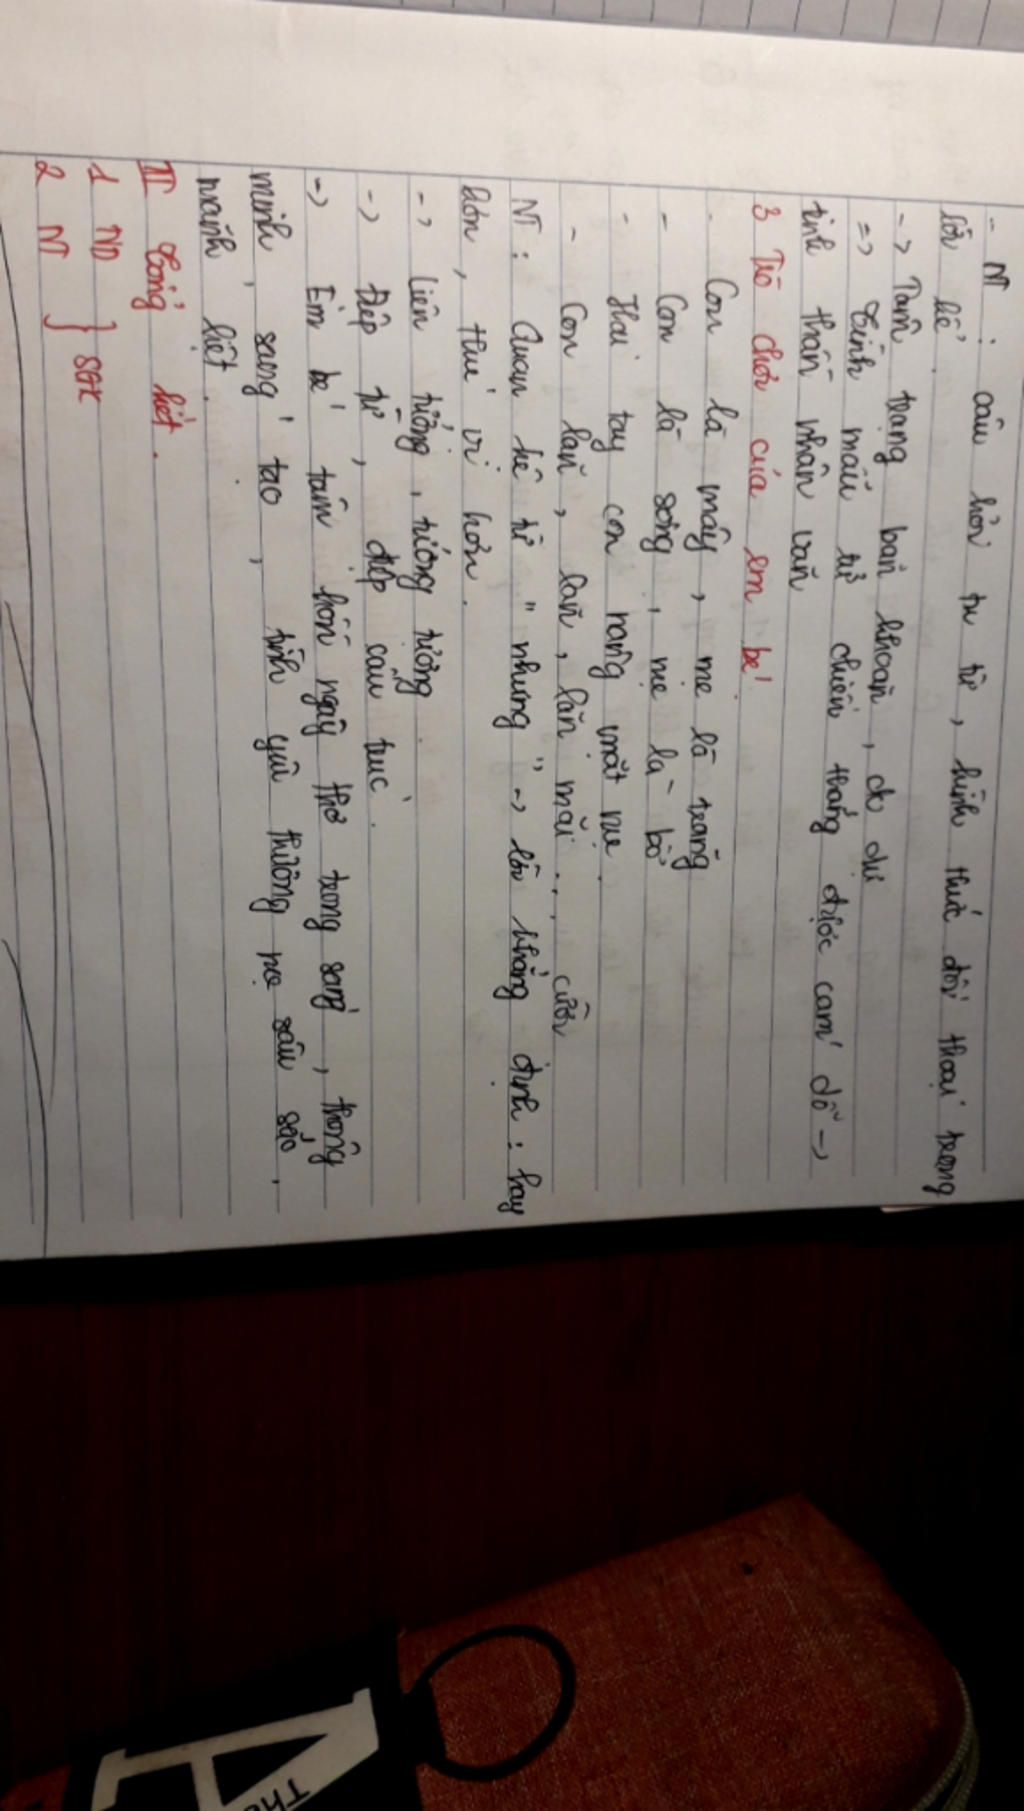 - NT : câu hỏi tu từ, hình thức đối thoại trong
lời kể.
-> Tâm trạng băn khoăn, do dự
=> Tình mẫu tử chiến thắng được cám dỗ ->
tính thần nhân văn
3 Trò chơi của em bé!
- Con là mây, mẹ là trăng
- Con là sóng, mẹ là bờ
- Hai tay con nâng mặt mẹ.
- Con lăn, lăn, lăn mãi ... cười
NT : Quan hệ từ " nhưng " -> lời khẳng định : hay
hơn, thú vị hơn.
-> Liên tưởng, tưởng tượng.
-> Điệp từ, điệp cấu trúc.
-> Em bé tâm hồn ngây thơ trong sáng, thông
minh, sáng tạo, tình yêu thương mẹ sâu sắc,
mãnh liệt.
III Tổng kết.
1 ND } SGK
2 NT
The